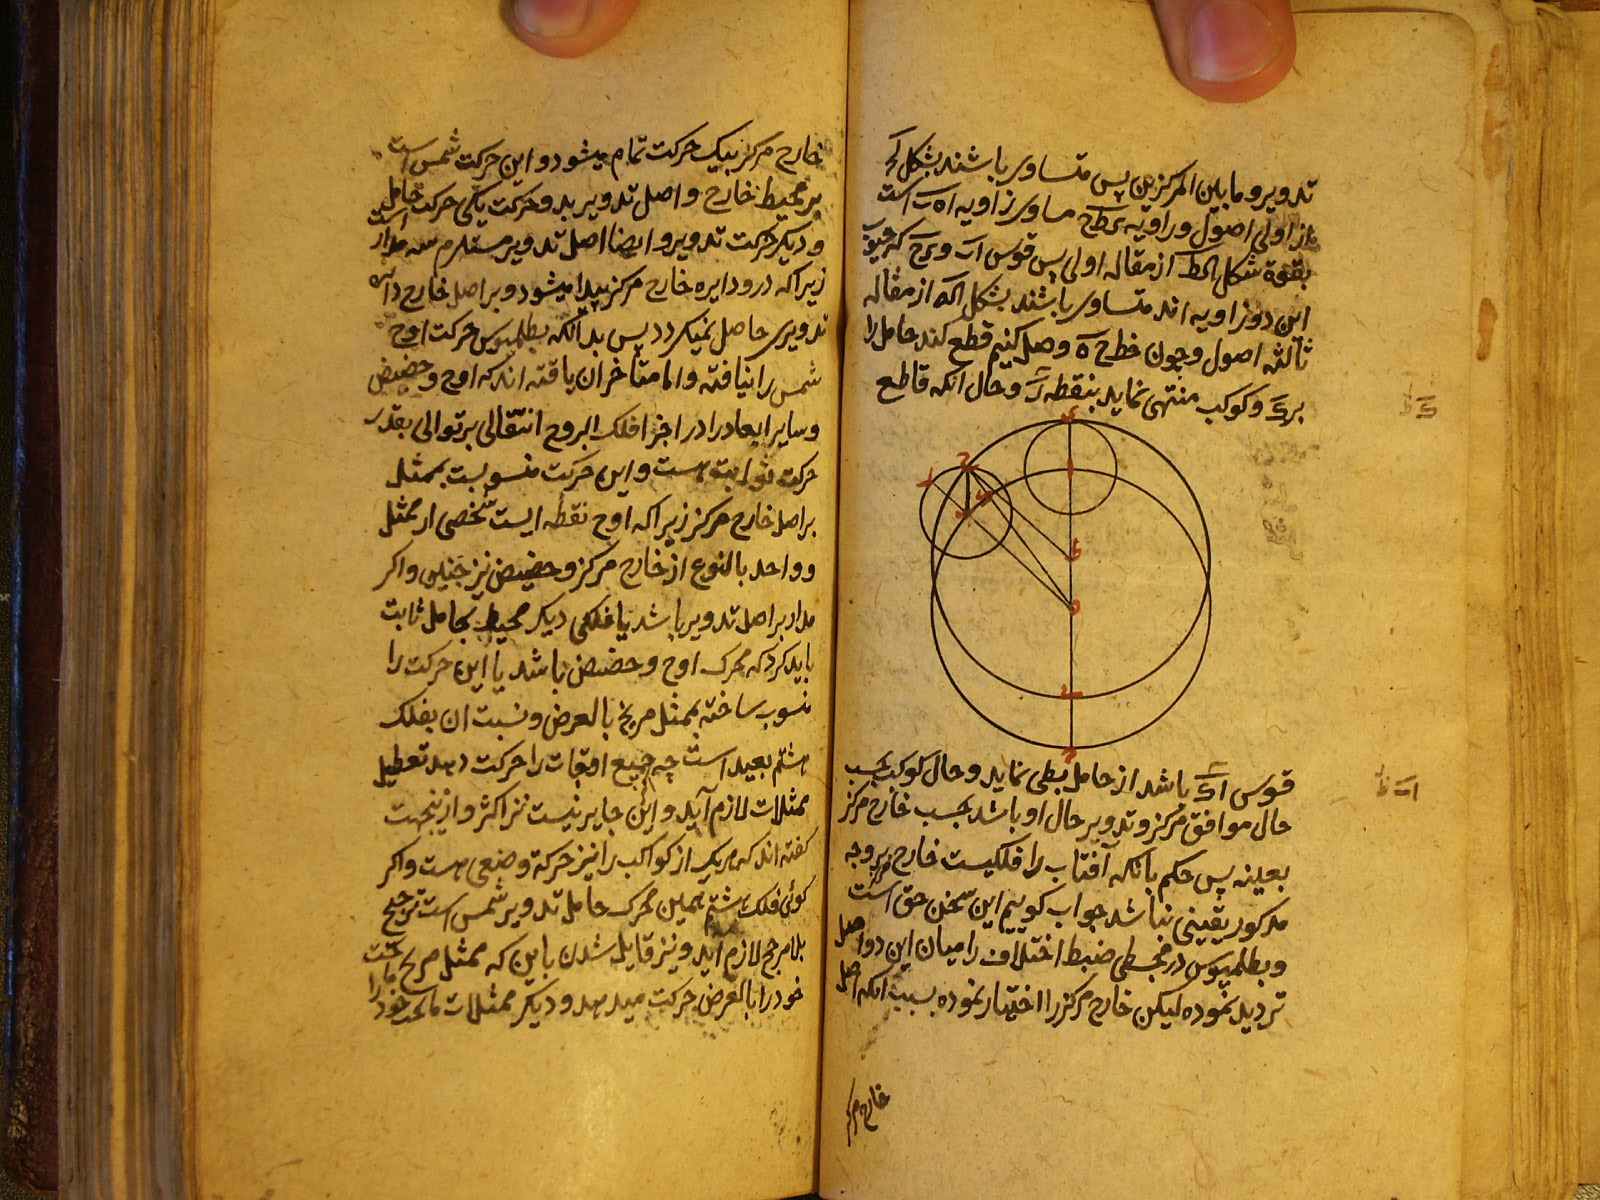 تدویر و ما بین المرکزین پس متساوی باشند بشکل
از اولی اصول و زاویه مساوی زاویه است
بقوة شکل از مقاله اولی پس قوس و که
این دو زاویه اند متساوی باشند بشکل از مقاله
ثالثه اصول و چون خط ح ه وصل کنیم قطع کند حامل را
بر و کوکب منتهی نماید بنقطه و حال آنکه قاطع
قوس باشد از حامل بطی نماید و حال کوکب بحسب
حال موافق مرکز و تدویر حال او باشد بحسب خارج مرکز
بعینه پس حکم بانکه آفتاب را فلکیست خارج مرکز بر وجه
مذکور یقینی نباشد جواب کوییم این سخن حق است
و بطلمیوس در مجسطی ضبط اختلاف را میان این دو اصل
تردید نموده لیکن خارج مرکز را اختیار نموده بسبب انکه اصل
خارج مرکز
خارج مرکز بیک حرکت تمام میشود و این حرکت شمس است
بر محیط خارج و اصل تدویر بدو حرکت یکی حرکت حامل
و دیکر حرکت تدویر و ایضا اصل تدویر مستلزم سه مدار است
زیرا که درو دایره خارج مرکز پیدا میشود و بر اصل خارج دایره
تدویری حاصل نمیکردد پس بدانکه بطلمیوس حرکت اوج
شمس را نیافته و اما متأخران یافته اند که اوج و حضیض
و سایر ابعاد را در اجزا فلک البروج انتقالی بر توالی بقدر
حرکت ثوابت هست و این حرکت منسوبست بممثل
بر اصل خارج مرکز زیرا که اوج نقطه ایست شخصی از ممثل
و واحد بالنوع از خارج مرکز و حضیض نیز چنین و اکر
مدار بر اصل تدویر باشد یا فلکی دیکر محیط بحامل ثابت
باید کرد که محرک اوج و حضیض باشد یا این حرکت را
منسوب ساخته بممثل مریخ بالعرض و نسبت ان بفلک
هشتم بعید است چه جمیع اوجات را حرکت دهد تعطیل
ممثلات لازم آید و این جایز نیست نزد اکثر و ازینجهت
کفته اند که هر یک از کواکب را نیز حرکة وضعی هست و اکر
کوئی فلک هشتم همین محرک حامل تدویر شمس است ترجیح
بلا مرجح لازم آید و نیز قایل شدن باین که ممثل مریخ ما تحت
خود را بالعرض حرکت میدهد و دیکر ممثلات ما تحت خود را